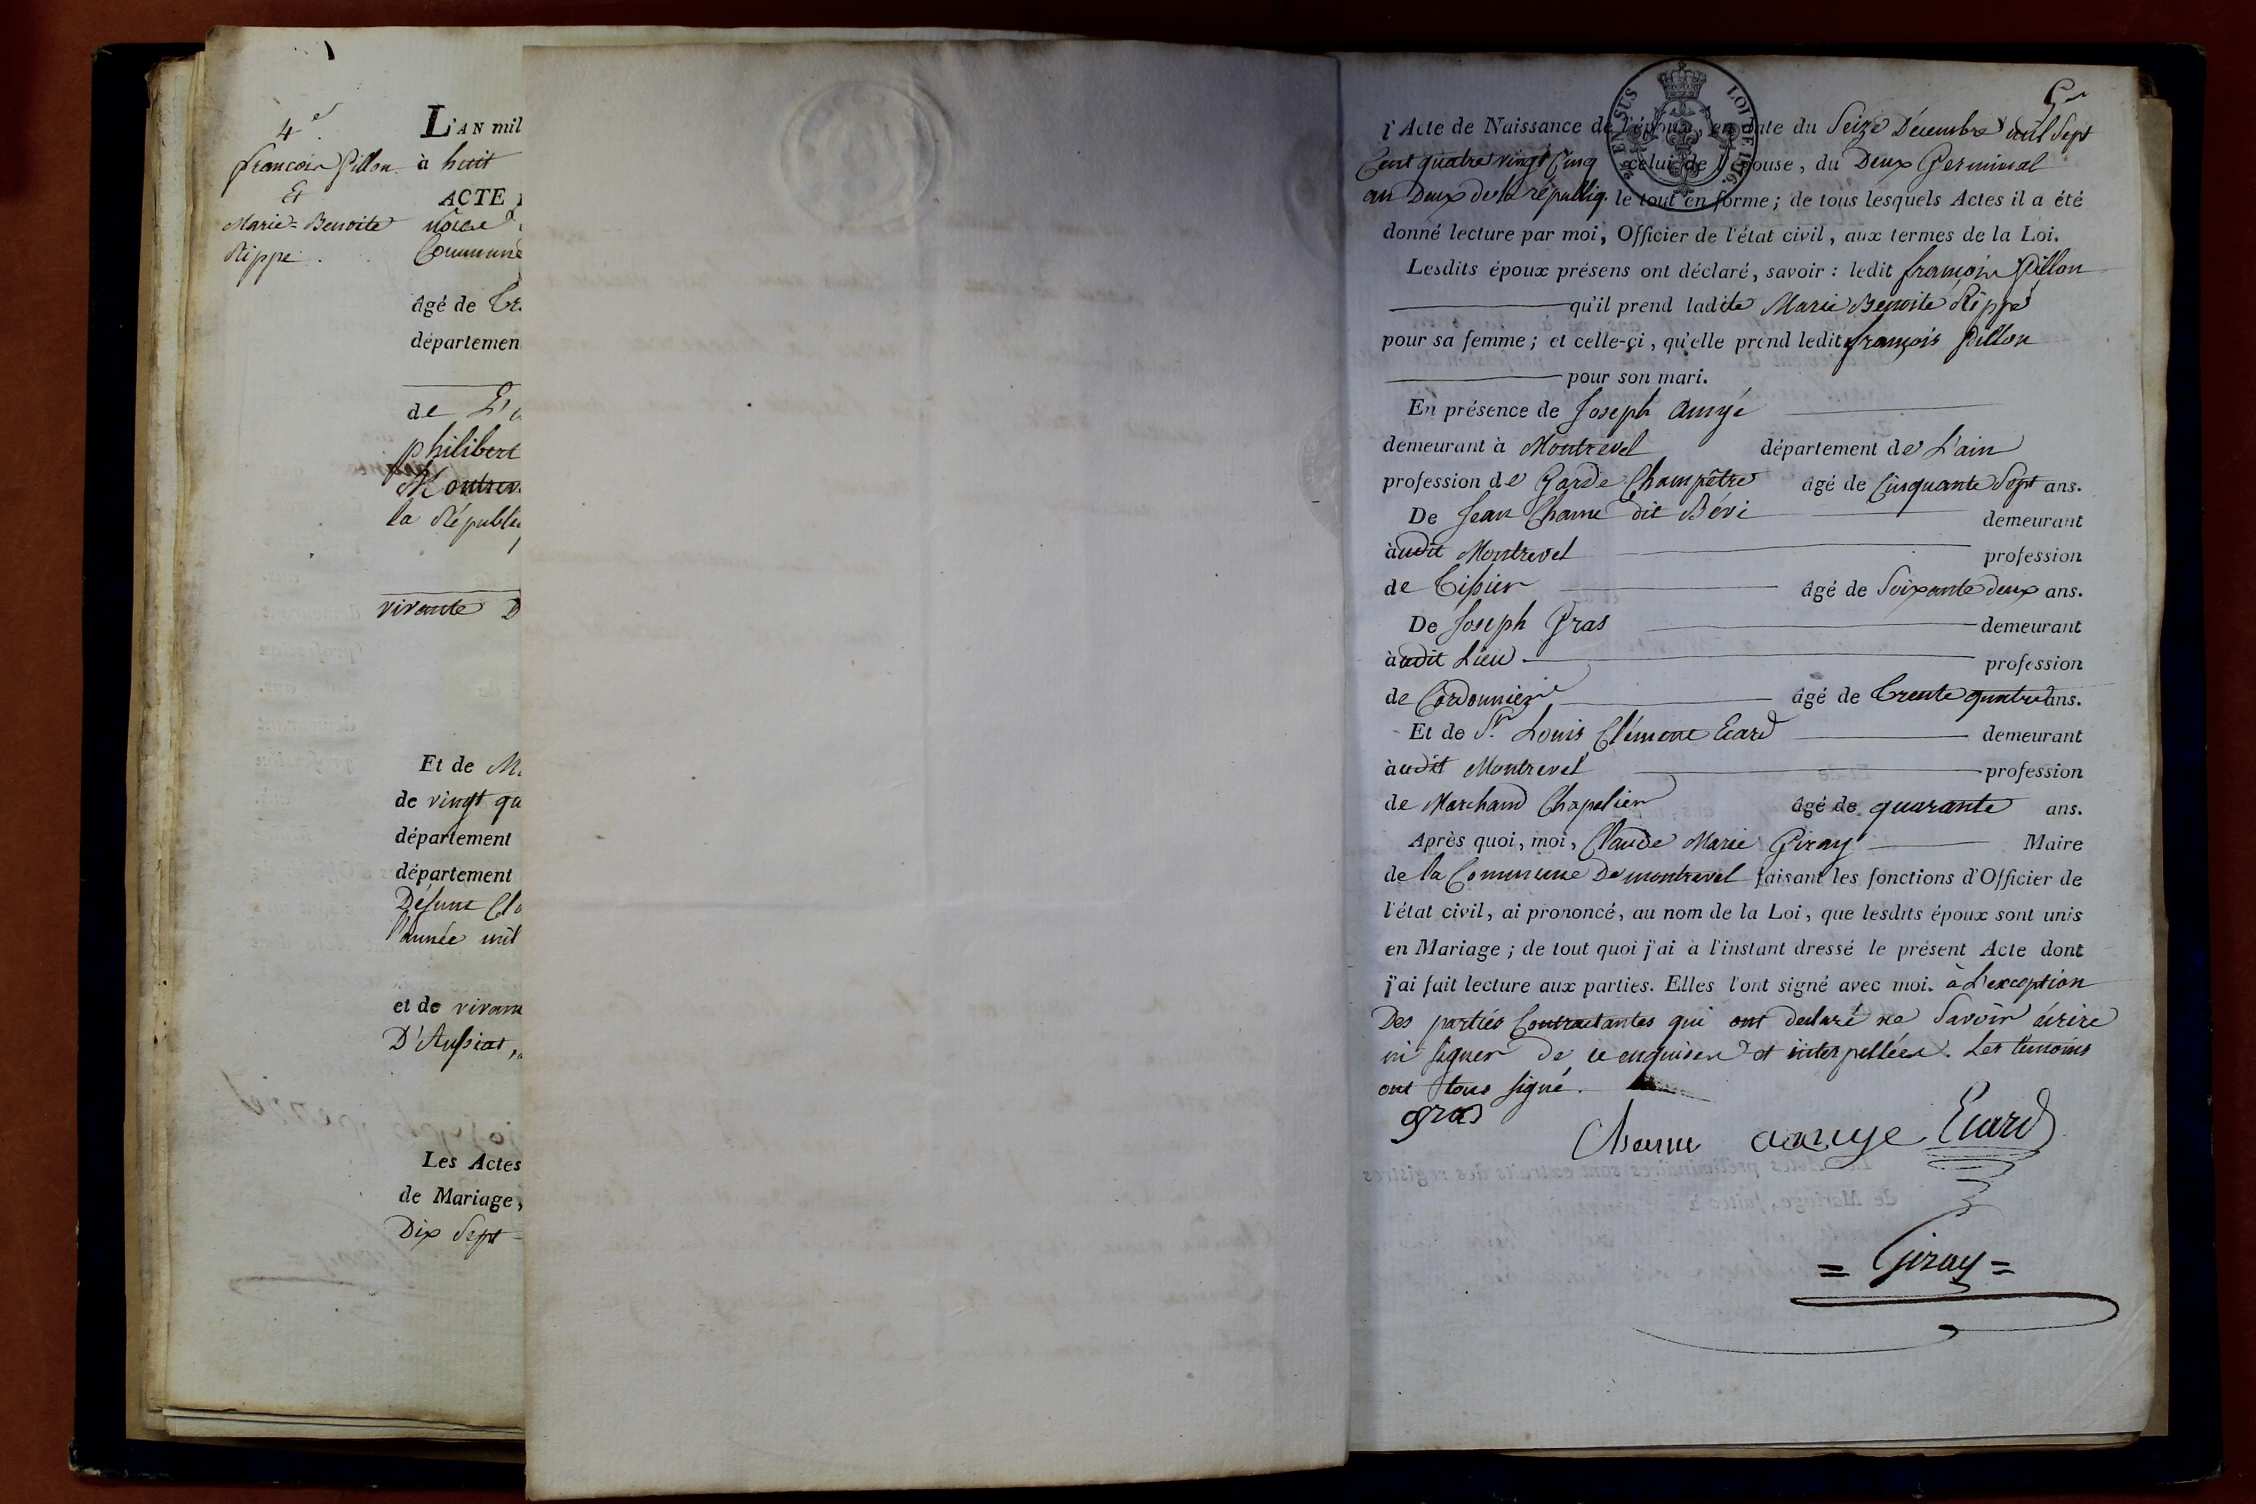 4e.
françois Pillon
Et
Marie=Benoite
Rippe
L'AN mil
à huit
ACTE
Commune
âgé de Tr
départemen
de L'a
philibert
Montrev
la Républi
vivante D
Et de Ma
de vingt qu
département
département
Défunt Cla
l'année mil
et de vivan
D'Aussiat,
Les Actes
de Mariage,
Dix Sept
5me
l'Acte de Naissance de l'époux, en date du Seize Décembre mil Sept
Cent quatre vingt Cinq celui de l'épouse, du Deux Germinal
an Deux de la républiq. le tout en forme; de tous lesquels Actes il a été
donné lecture par moi, Officier de l'état civil, aux termes de la Loi.
Lesdits époux présens ont déclaré, savoir: ledit françois Pillon
qu'il prend ladite Marie Benoite Rippe
pour sa femme; et celle-çi, qu'elle prend ledit françois Pillon
pour son mari.
En présence de Joseph Amyé
demeurant à Montrevel département de L'ain
profession de Garde Champêtre âgé de Cinquante Sept ans.
De Jean Chame dit Béri demeurant
audit Montrevel profession
de Tissier âgé de Soixante deux ans.
De Joseph Gras demeurant
audit Lieu profession
de Cordonnier âgé de Trente quatre ans.
Et de Sr. Louis Clément Ecard demeurant
audit Montrevel profession
de Marchand Chapelier âgé de quarante ans.
Après quoi, moi, Claude Marie Giray Maire
de la Commune De montrevel faisant les fonctions d'Officier de
l'état civil, ai prononcé, au nom de la Loi, que lesdits époux sont unis
en Mariage; de tout quoi j'ai à l'instant dressé le présent Acte dont
j'ai fait lecture aux parties. Elles l'ont signé avec moi. à L'exception
Des parties Contractantes qui ont declaré ne Savoir écrire
ni signer de ce enquises et interpellées. Les témoins
ont tous signé.
gras
Chame amye Ecard
= Giray =